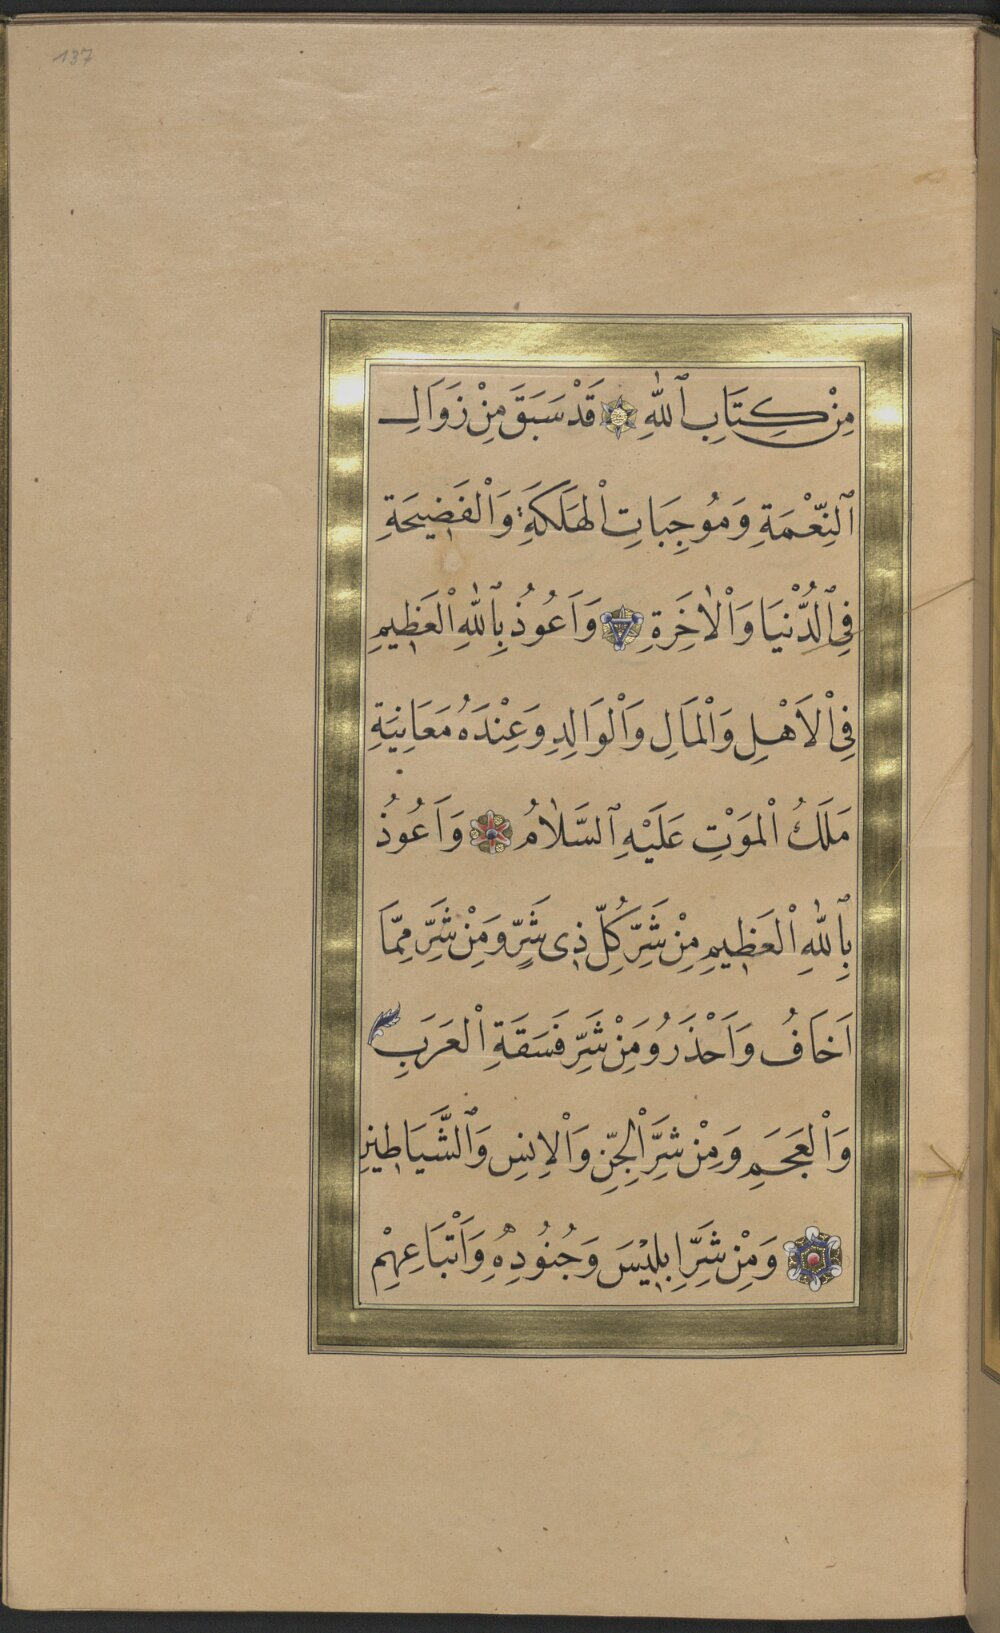 137
مِنْ كِتَابِ ٱللّٰهِ قَدْ سَبَقَ مِنْ زَوَالِ
ٱلنِّعْمَةِ وَمُوجِبَاتِ الْهَلَكَةِ وَالْفَضِيحَةِ
فِى ٱلدُّنْيَا وَالْاٰخَرِةِ وَاَعُوذُ بِٱللّٰهِ الْعَظِيمِ
فِى الْاَهْلِ وَالْمَالِ وَالْوَالِدِ وَعِنْدَ مُعَايَنَةِ
مَلَكُ الْمَوْتِ عَلَيْهِ ٱلسَّلَامُ وَاَعُوذُ
بِٱللّٰهِ الْعَظِيمِ مِنْ شَرِّ كُلِّ ذِى شَرٍّ وَمِنْ شَرِّ مِمَّا
اَخَافُ وَاَحْذَرُ وَمِنْ شَرِّ فَسَقَةِ الْعَرَبِ
وَالْعَجَمِ وَمِنْ شَرِّ الْجِنِّ وَالْاِنْسِ وَٱلشَّيَاطِينِ
وَمِنْ شَرِّ اِبْلِيسَ وَجُنُودِهِ وَاَتْبَاعِهِمْ